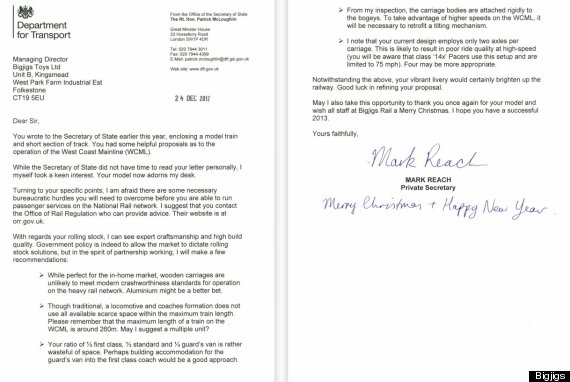 Department
for Transport
From the Office of the Secretary of State
The Rt. Hon. Patrick McLoughlin
Great Minster House
33 Horseferry Road
London SW1P 4DR
Tel: 020 7944 3011
Fax: 020 7944 4399
E-Mail: patrick.mcloughlin@dft.gsi.gov.uk
Web site: www.dft.gov.uk
Managing Director
Bigjigs Toys Ltd
Unit B, Kingsmead
West Park Farm Industrial Est
Folkestone
CT19 5EU
24 DEC 2012
Dear Sir,
You wrote to the Secretary of State earlier this year, enclosing a model train
and short section of track. You had some helpful proposals as to the
operation of the West Coast Mainline (WCML).
While the Secretary of State did not have time to read your letter personally, I
myself took a keen interest. Your model now adorns my desk.
Turning to your specific points, I am afraid there are some necessary
bureaucratic hurdles you will need to overcome before you are able to run
passenger services on the National Rail network. I suggest that you contact
the Office of Rail Regulation who can provide advice. Their website is at
orr.gov.uk.
With regards your rolling stock, I can see expert craftsmanship and high build
quality. Government policy is indeed to allow the market to dictate rolling
stock solutions, but in the spirit of partnership working, I will make a few
recommendations.
➢ While perfect for the in-home market, wooden carriages are
unlikely to meet modern crashworthiness standards for operation
on the heavy rail network. Aluminium might be a better bet.
➢ Though traditional, a locomotive and coaches formation does not
use all available scarce space within the maximum train length.
Please remember that the maximum length of a train on the
WCML is around 260m. May I suggest a multiple unit?
➢ Your ratio of ⅓ first class, ⅓ standard and ⅓ guard's van is rather
wasteful of space. Perhaps building accommodation for the
guard's van into the first class coach would be a good approach.
➢ From my inspection, the carriage bodies are attached rigidly to
the bogeys. To take advantage of higher speeds on the WCML, it
will be necessary to retrofit a tilting mechanism.
➢ I note that your current design employs only two axles per
carriage. This is likely to result in poor ride quality at high-speed
(you will be aware that class '14x' Pacers use this setup and are
limited to 75 mph). Four may be more appropriate.
Notwithstanding the above, your vibrant livery would certainly brighten up the
railway. Good luck in refining your proposal.
May I also take this opportunity to thank you once again for your model and
wish all staff at Bigjigs Rail a Merry Christmas. I hope you have a successful
2013.
Yours faithfully,
Mark Reach
MARK REACH
Private Secretary
Merry Christmas + Happy New Year.
Bigjigs